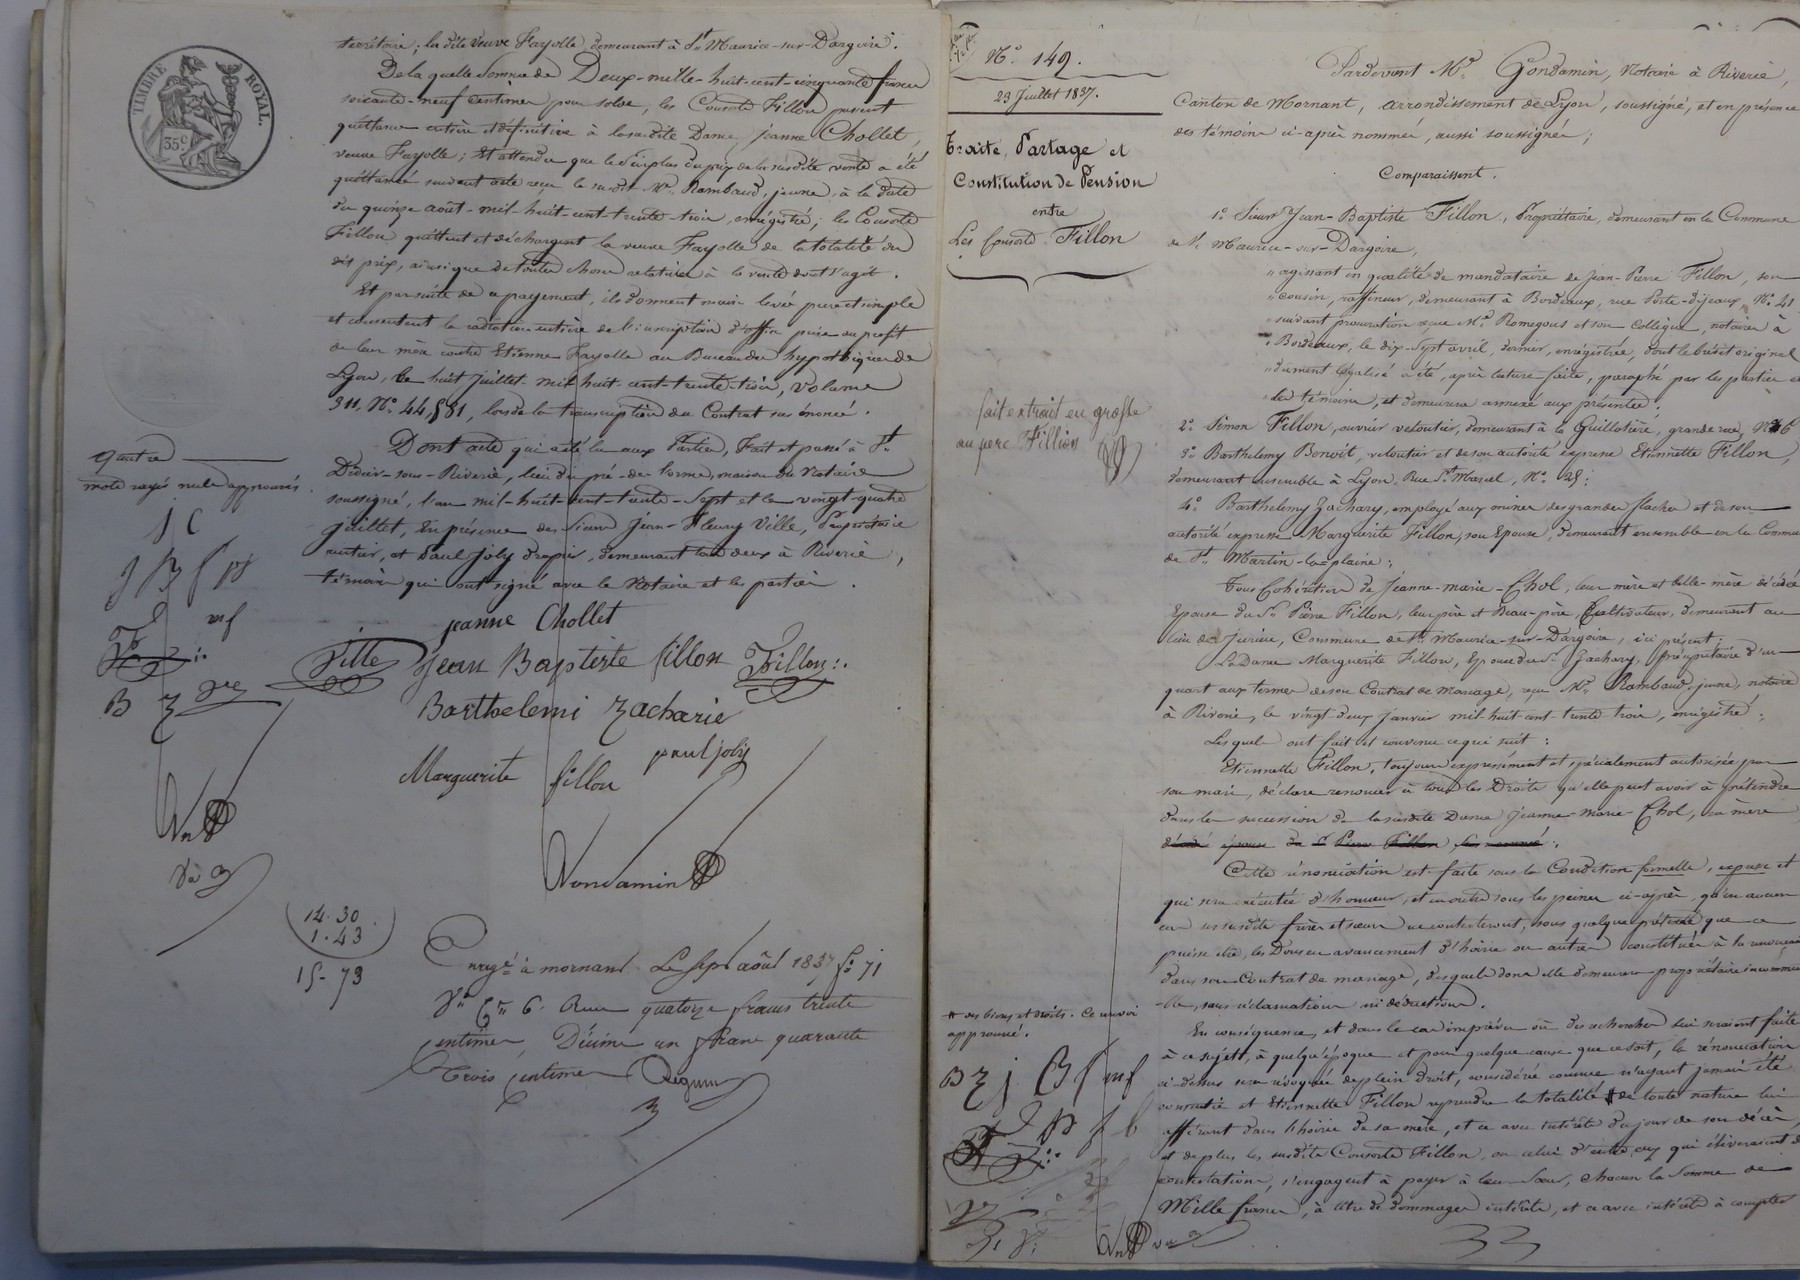 TIMBRE ROYAL.
35c
territoire; la dite veuve Fayolle demeurant à St Maurice-sur-Dargoire.
De la quelle somme de Deux-mille-huit-cent-cinquante francs
soixante-neuf centimes pour solde, les Consorts Fillon passent
quittance entière et définitive à la susdite Dame Jeanne Chollet,
veuve Fayolle; Et attendu que le surplus du prix de la susdite vente a été
quittancé suivant acte reçu le susdit Me Rambaud, jeune, à la date
du quinze août-mil-huit-cent-trente-trois, enrégistré; les Consorts
Fillon quittent et déchargent la veuve Fayolle de la totalité du
dit prix, ainsi que de toutes choses relatives à la vente dont s'agit.
Et par suite de ce payement, ils donnent main-levée pure et simple
et consentent la radiation entière de l'inscription d'office prise au profit
de leur mère contre Etienne Fayolle au Bureau des hypothèques de
Lyon, le huit Juillet-mil huit-cent-trente-trois, volume
311, No 44,551, lors de la transcription du Contrat sus énoncé.
Dont acte qui a été lu aux Parties, Fait et passé à St
Didier-sous-Riverie, lieu du pré-de l'orme, maison du Notaire
soussigné, l'an mil-huit-cent-trente-sept et le vingt-quatre
juillet, En présence des Sieurs Jean-Fleury Ville, Propriétaire
rentier, et Paul Joly drapier, demeurant tous deux à Riverie,
témoins qui ont signé avec le Notaire et les parties.
quatre
mots rayés nuls approuvés
J C
J B f
mf
B Z
jeanne Chollet
Ville Jean Baptiste fillon Fillon
Barthelemi Zacharie
paul joly
Marguerite fillon
Gondamin
14.30
1.43
15-73
Enregé à mornant Le sept août 1837 fo 71
Vo Ces 6. Reçu quatorze francs trente
centimes, Décime un franc quarante
trois centimes
No 149.
23 Juillet 1837.
Traité, Partage et
Constitution de Pension
entre
Les Consorts Fillon
fait extrait en grosse
au pere Fillion
Pardevant Me Gondamin, Notaire à Riverie,
Canton de Mornant, arrondissement de Lyon, soussigné, et en présence
des témoins ci-après nommés, aussi soussignés;
Comparaissent.
1o Sieur Jean-Baptiste Fillon, Propriétaire, demeurant en la Commune
de St Maurice-sur-Dargoire,
" agissant en qualité de mandataire de Jean-Pierre Fillon, son
" cousin, raffineur, demeurant à Bordeaux, rue Porte-dijeaux No 41
" suivant procuration reçue Me Romegous et son Collègue, notaires à
" Bordeaux, le dix-sept avril, dernier, enrégistrée, dont le brevet original
" dument légalisé a été, après lecture faite, paraphé par les parties et
" les témoins, et demeurera annexé aux présentes.
2o Simon Fillon, ouvrier veloutier, demeurant à la Guillotière, grande rue, No 6
3o Barthelemy Benoit, veloutier et de son autorité expresse Etiennette Fillon,
demeurant ensemble à Lyon, Rue St Marcel, No 25;
4o Barthelemy Zachary, employé aux mines des grandes flaches et de son
autorité expresse Marguerite Fillon, son Epouse, demeurant ensemble en la Commune
de St Martin-la-plaine;
Tous Cohéritiers de Jeanne-marie-Chol, leur mère et belle-mère décédée
Epouse du Sr Pierre Fillon, leur père et Beau-père, Cultivateur, demeurant au
lieu de Jurieux, Commune de St Maurice-sur-Dargoire, ici présent;
La Dame Marguerite Fillon, Epouse du Sr Zachary, préciputaire d'un
quart aux termes de son Contrat de mariage, reçu Me Rambaud, jeune, notaire
à Riverie, le vingt-deux janvier mil-huit-cent-trente-trois, enrégistré;
Lesquels ont fait et convenu ce qui suit:
Etiennette Fillon, toujours expressément et spécialement autorisée par
son mari, déclare renoncer à tous les Droits qu'elle peut avoir à prétendre
dans la succession de la susdite Dame Jeanne-marie-Chol, sa mère
décédé épouse du Sr Pierre Fillon
Cette rénonciation est faite sous la Condition formelle, expresse et
qui sera exécutée d'honneur, et en outre sous les peines ci-après, qu'en aucun
cas ses susdits frères et sœur ne contesteront, sous quelque prétexte que ce
puisse etre, les Dons en avancement d'hoirie ou autres constitués à la renonçante
dans son Contrat de mariage, desquels dons elle demeurera propriétaire incommuta
-ble, sans réclamations ni déductions.
En conséquence, et dans le cas imprévu où des recherches lui seraient faites
à ce sujet, à quelqu'époque et pour quelque cause que ce soit, la rénonciation
ci-dessus sera révoquée de plein droit, considérée comme n'ayant jamais été
consentie et Etiennette Fillon reprendra la totalité # de toute nature lui
afférant dans l'hoirie de sa mère, et ce avec intérêts du jour de son décès,
et de plus les susdits Consorts Fillon, ou celui d'entre eux qui élèveraient des
contestations, s'engagent à payer à leur Sœur, chacun la somme de
Mille francs, à titre de dommages intérêts, et ce avec intérêts à compter
# des biens et droits. Ce renvoi
approuvé.
B Z J. B f mf